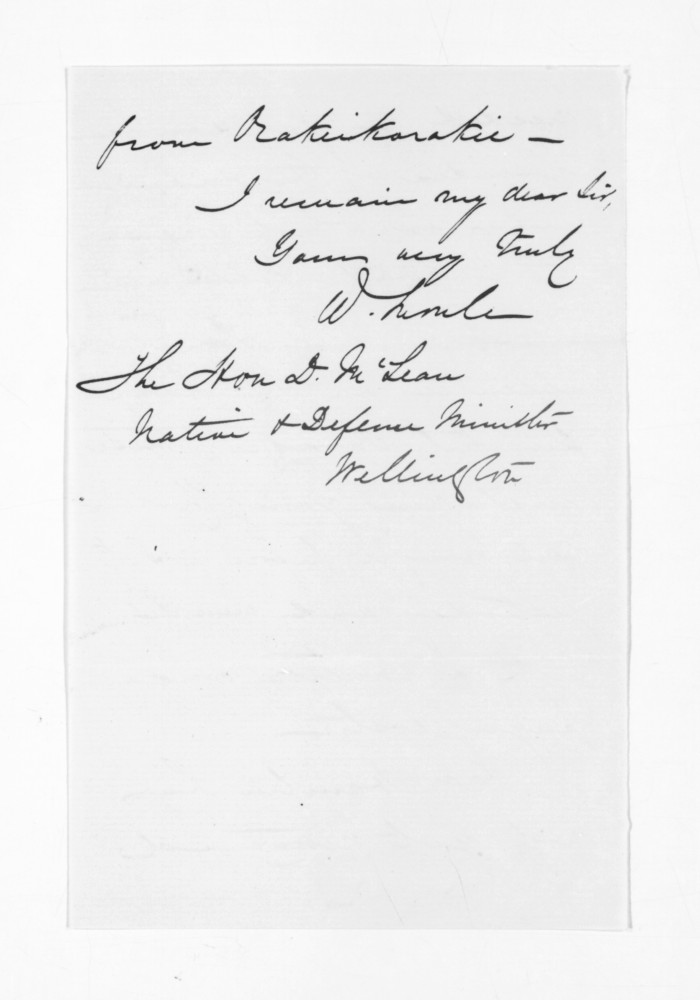 from Orakeikorakie —
I remain my dear Sir,
Yours very truly
W.
The Hon D. McLean
Native & Defence Minister
Wellington